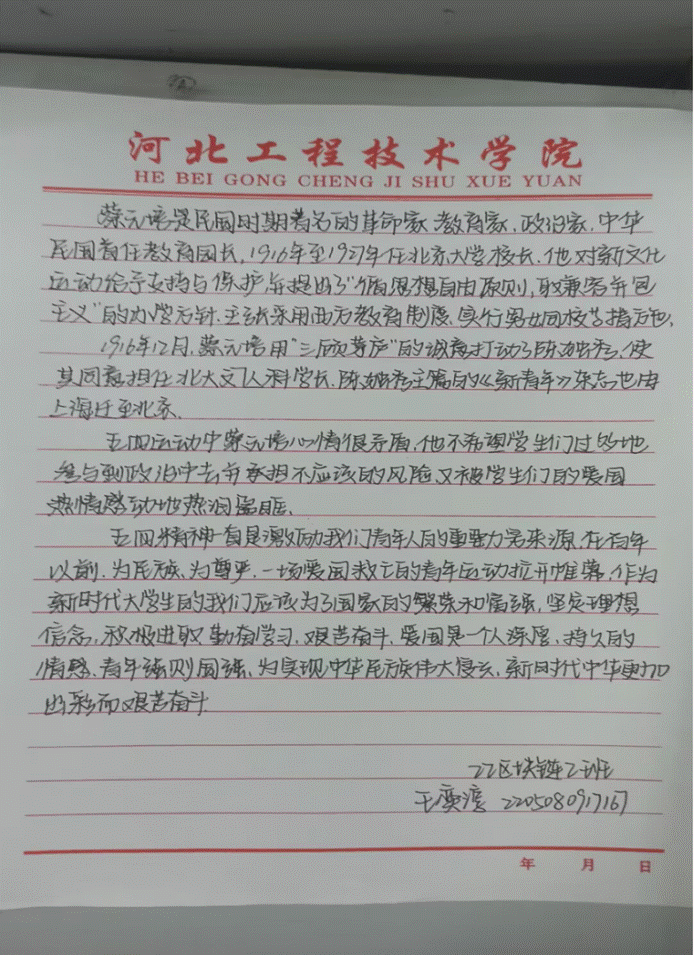 河北工程技术学院
HE BEI GONG CHENG JI SHU XUE YUAN
蔡元培是民国时期著名的革命家、教育家、政治家，中华
民国首任教育园长，1916年至1927年任北京大学校长，他对新文化
运动给予支持与保护，并提出了"循思想自由原则，取兼容并包
主义"的办学方针，主张采用西方教育制度，实行男女同校等措施。
1916年12月，蔡元培用"三顾茅庐"的诚意打动了陈独秀，使
其同意担任北大文人科学长，陈独秀主篇的《新青年》杂志也由
上海迁至北京。
五四运动中蔡元培心情很矛盾，他不希望学生们过多地
参与到政治中去并承担不应该的风险，又被学生们的爱国
热情感动地热泪盈眶。
五四精神一直是激励我们青年人的重要力量来源，在百年
以前，为民族，为尊严，一场爱国救亡的青年运动拉开帷幕，作为
新时代大学生的我们应该为了国家的繁荣和富强，坚定理想
信念，积极进取，勤奋学习，艰苦奋斗，爱国是一个人深厚、持久的
情感，青年强则国强，为实现中华民族伟大复兴，新时代中华更加
出彩而艰苦奋斗
22区块链2班
王 220508091716
年 月 日